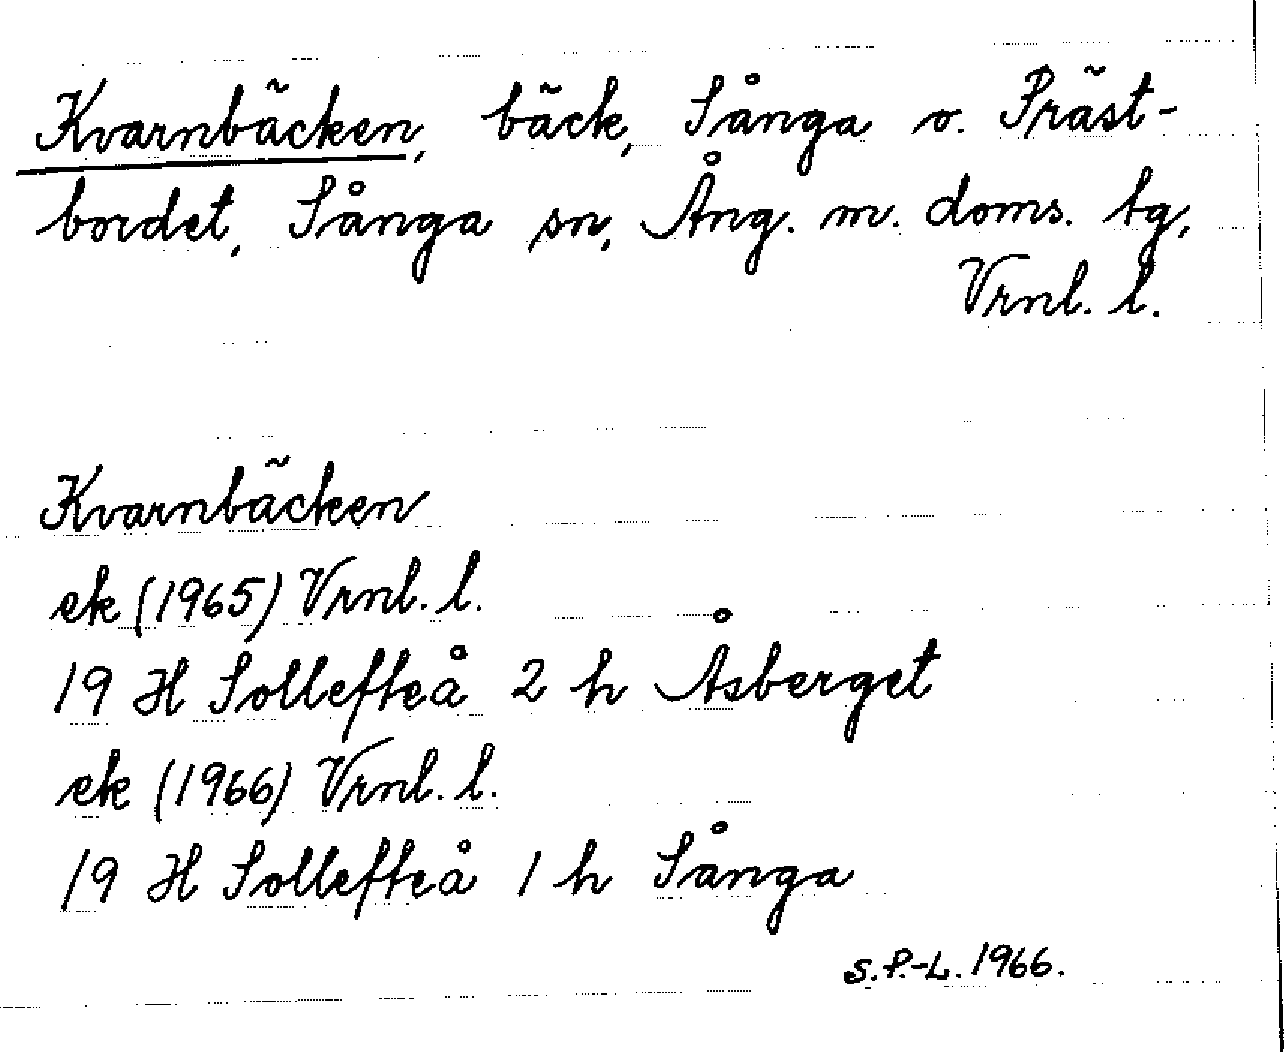 Kvarnbäcken, bäck, Sånga o. Präst-
bordet, Sånga sn, Ång. m. doms. tg,
Vrnl. l.
Kvarnbäcken
ek (1965) Vrnl. l.
19 H Sollefteå 2 h Åsberget
ek (1966) Vrnl. l.
19 H Sollefteå 1 h Sånga
S.P.-L. 1966.